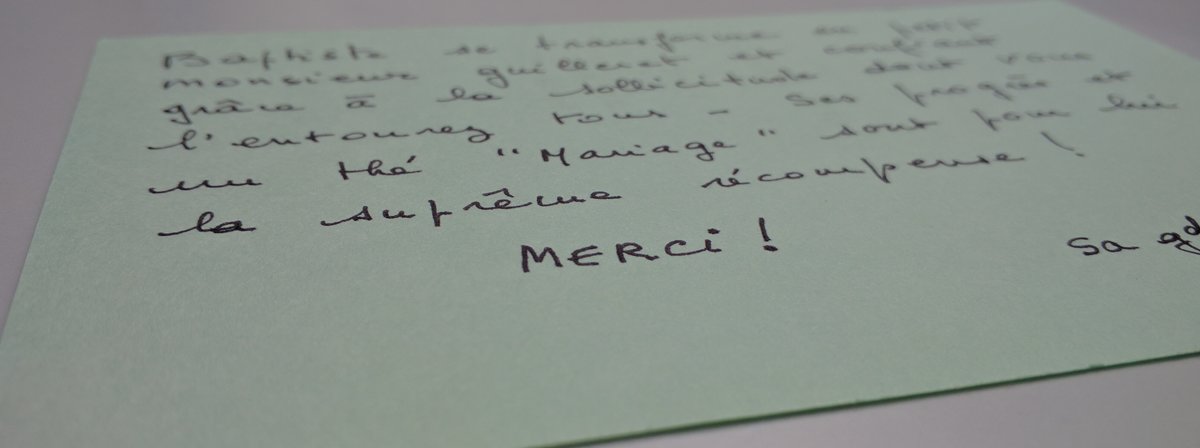 Baptiste se transforme en petit
monsieur guilleret et confiant
grâce à la sollicitude dont vous
l'entourez tous - Ses progrès et
un thé "Mariage" sont pour lui
la suprême récompense !
MERCi !
Sa gd